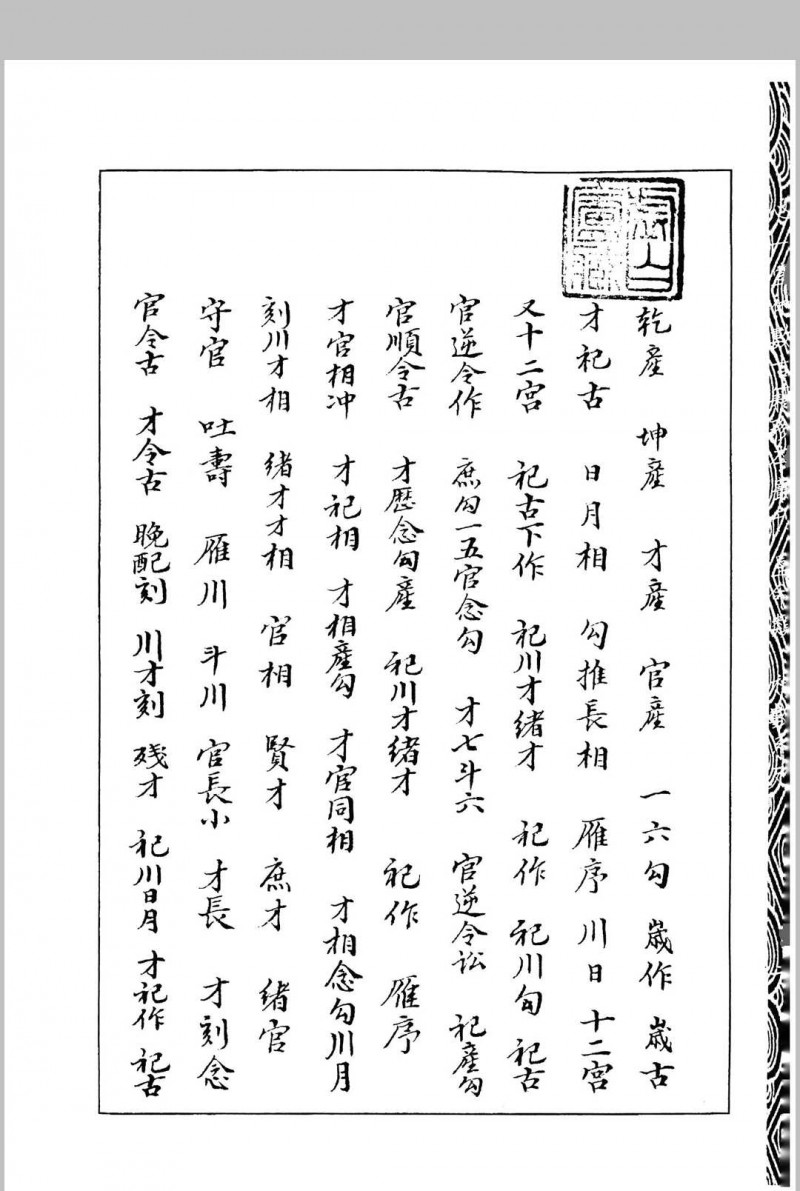 乾產 坤產 才產 官產 一六勾 嵗作 嵗古
才祀古 日月相 勾推長相 雁序 川日 十二宮
又十二宮 祀古下作 祀川才緒才 祀作 祀川勾 祀古
官逆令作 庶勾一五官念勾 才七斗六 官逆令訟 祀產勾
官順令古 才歷念勾產 祀川才緒才 祀作 雁序
才官相冲 才祀相 才相產勾 才官同相 才相念勾川月
刻川才相 緒才才相 官相 賢才 庶才 緒官
守官 吐壽 雁川 斗川 官長小 才長 才刻念
官令古 才令古 晚配刻 川才刻 殘才 祀川日月 才祀作 祀古